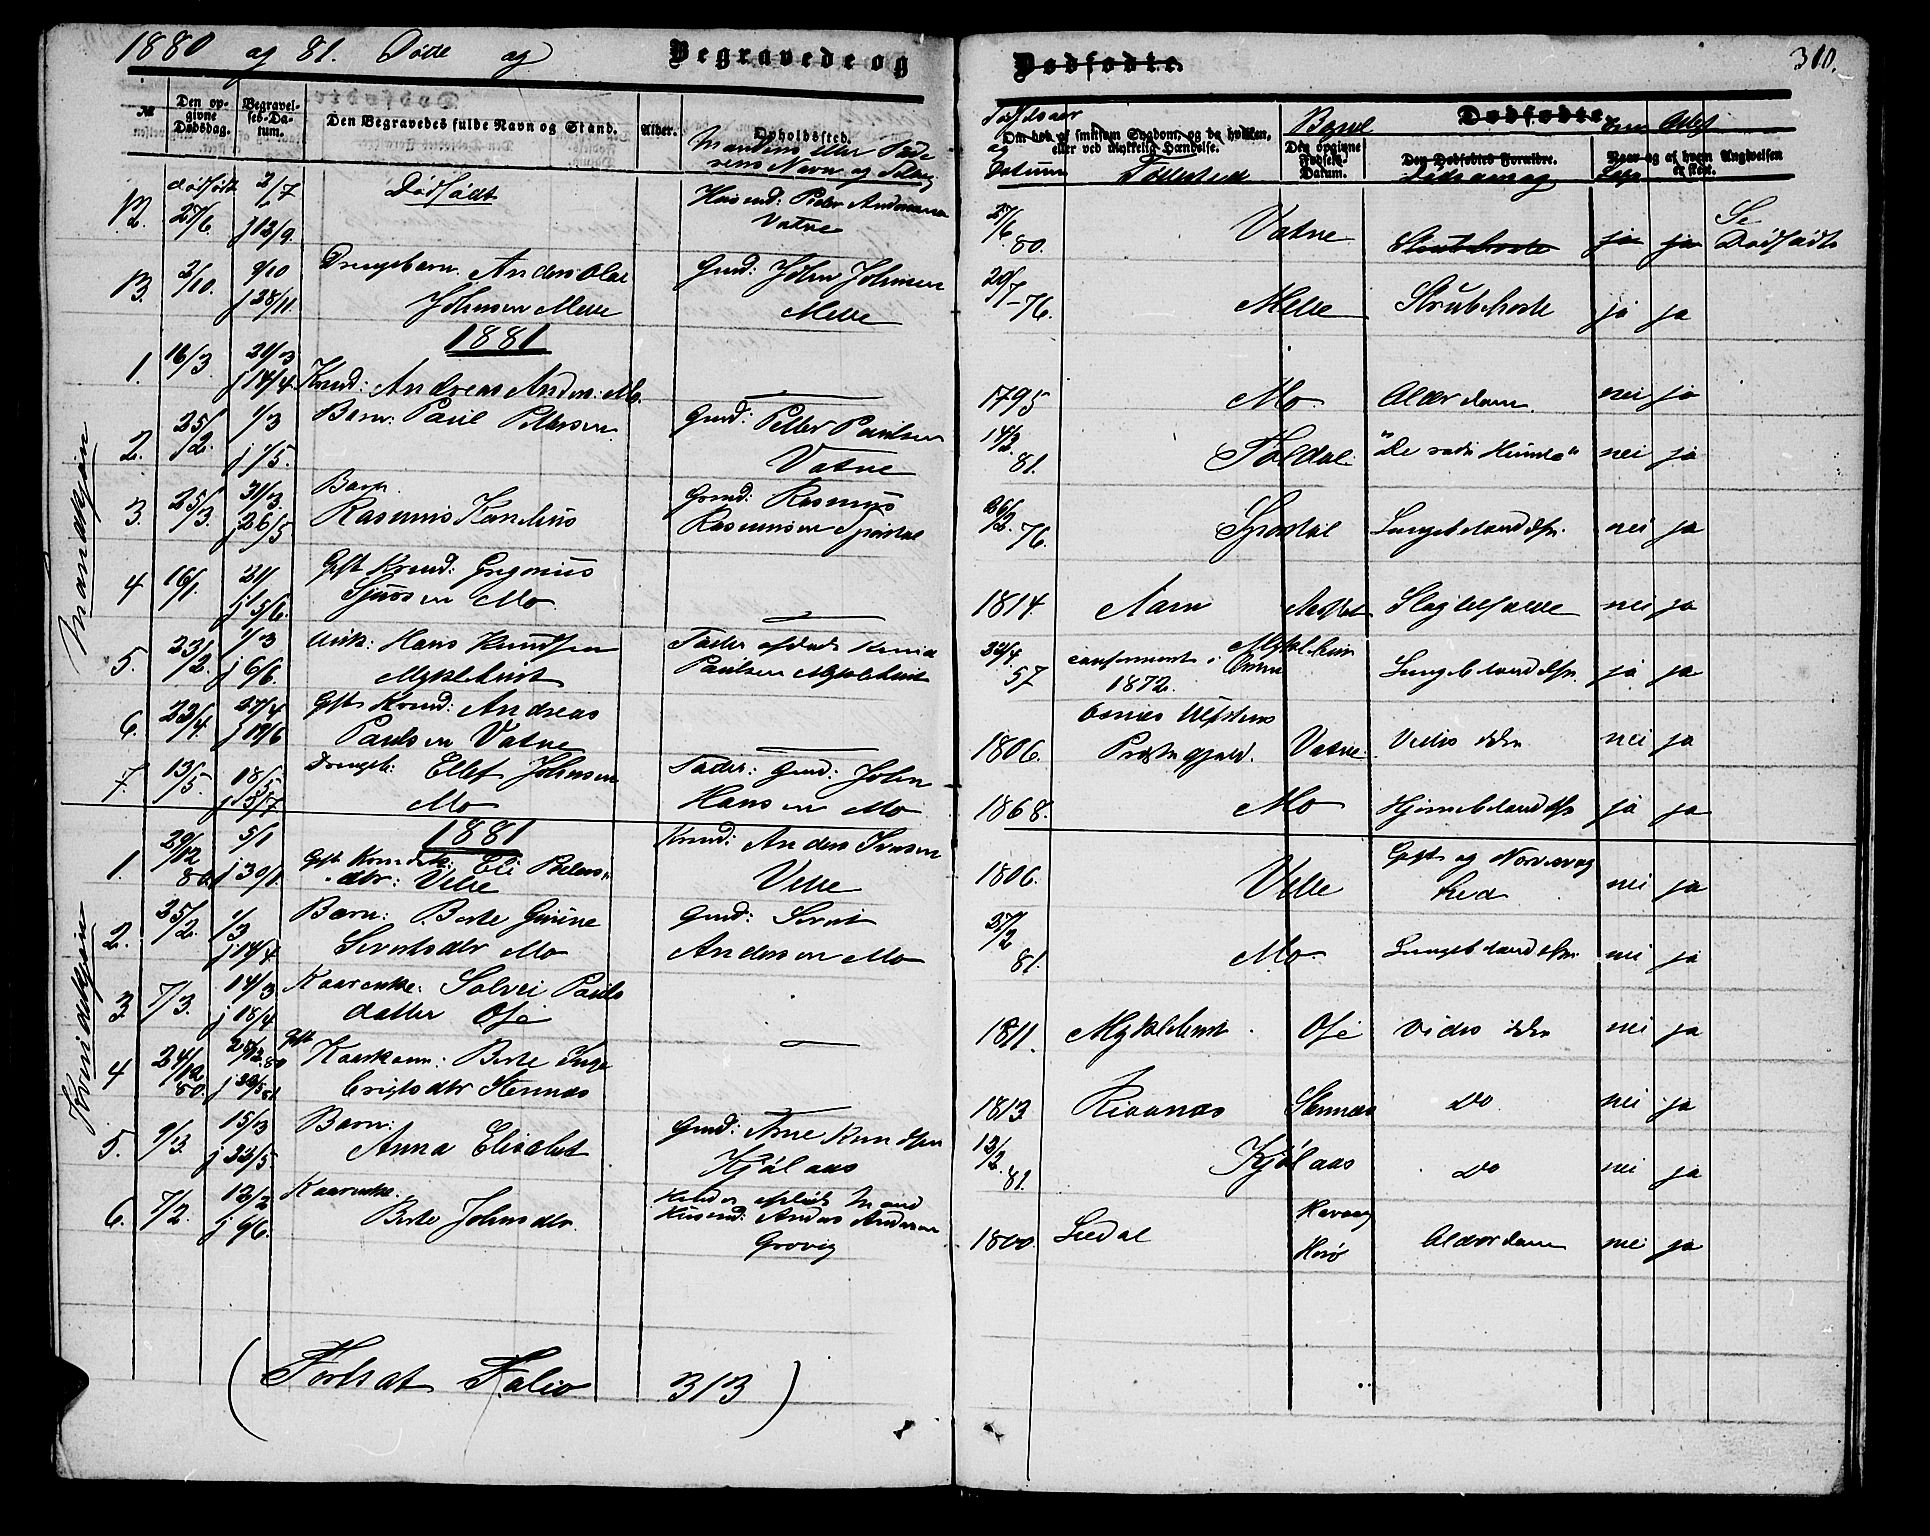 1880 og 81. Døde og Begravede og Dødfødte. 310.
№ Den opgivne Dødsdag. Begravelses-Datum. Den Begravedes fulde Navn og Stand. Alder. Opholdssted.
Mandens eller Faderens Navn og
Fødselsaar og Datum
Om død af smitsom Sygdom, og da hvilken, eller ved ulykkelig Hændelse.
Fødested
Bopæl
Den opgivne Fødsels Datum.
Dødfødte.
Den Dødfødtes Forældre.
Dødsaarsag
Naar og af hvem Angivelsen er skeet.
Mandkjøn
12. dødfødt 27/6. 2/7 j 12/9. Dødfødt Husmd: Peder Andersen Vatne 27/6 80. Vatne Strubehoste ja ja Se Dødfødte
13. 2/10. 9/10 j 28/11. Drengebarn Anders Olai Johnsen Melle Gmd: John Johnsen Melle 20/7-76. Melle Strubehoste ja ja
1881
1. 16/3. 21/3 j 14/4. Kaarmd: Andreas Anders: Mo. 1795 Mo. Alderdom. nei ja
2. 25/2. 1/3 j 1/5. Barn: Paul Pettersen Gmd: Petter Paulsen Vatne 14/2 81. Foldal "De rode Hunde" nei ja
3. 25/3. 31/3 j 26/5 Barn. Rasmus Kornelius Gmd: Rasmus Rasmussen 26/2 76. Lungebetændelse. nei ja
4 16/1. 21/1 j 5/6. Gift Kaarmd: Gregorius Sjursen Mo. 1814. Aam Slagtilfælde nei ja
5. 23/2. 1/3 j 6/6. Ungk: Hans Knudsen Myklebust Fader afdøde Knud Paulsen Myklebust 57 confirmert i 1872. Myklebust Lungebetændelse. ja ja
6. 23/4. 27/4 j 19/6 Gift Kaarmd: Andreas Paulsen Vatne 1806. Ulfstens Præstegjeld. Vatne. Vides ikke nei ja
7. 13/5. 18/5 j 3/7 Drengeb: Ellef Johnsen Mo Fader: Gmd: John Hansen Mo 1868. Mo Hjernebetændelse ja ja
1881
Kvindekjøn
1 29/12 80. 5/1 j 30/1. Gift Kaarmdsk: Eli Peders dtr: Velle Kaarmd: Anders Iversen Velle 1806. Velle nei ja
2. 25/2. 1/3 j 14/4 Barn: Berte Gurine Sivertsdtr Mo Gmd: Sivert Andersen Mo 27/2 81. Mo Lungebetændelse. nei ja
3. 7/3. 14/3 j 18/4 Kaarenke: Solvei Pauls datter Osé 1811. Myklebust. Osé vides ikke nei ja
4 24/12 80. j 23/5 81 Gift Kaarkone: Berte Inge Stennæs 1813 Stennæs do nei ja
5. 9/3. 15/3 j 23/5 Barn: Anna Elisabet Gmd: Arne Knudsen Kjølaas 13/2 81. Kjølaas do nei ja
6. 7/2. 12/2 j 6/6. Kaarenke. Berte Johnsdtr. Hendes afdøde Mand Husmd: Anders Andersen Grovig 1800. Herø Alderdom nei ja
( Fortsat Folio 313 )